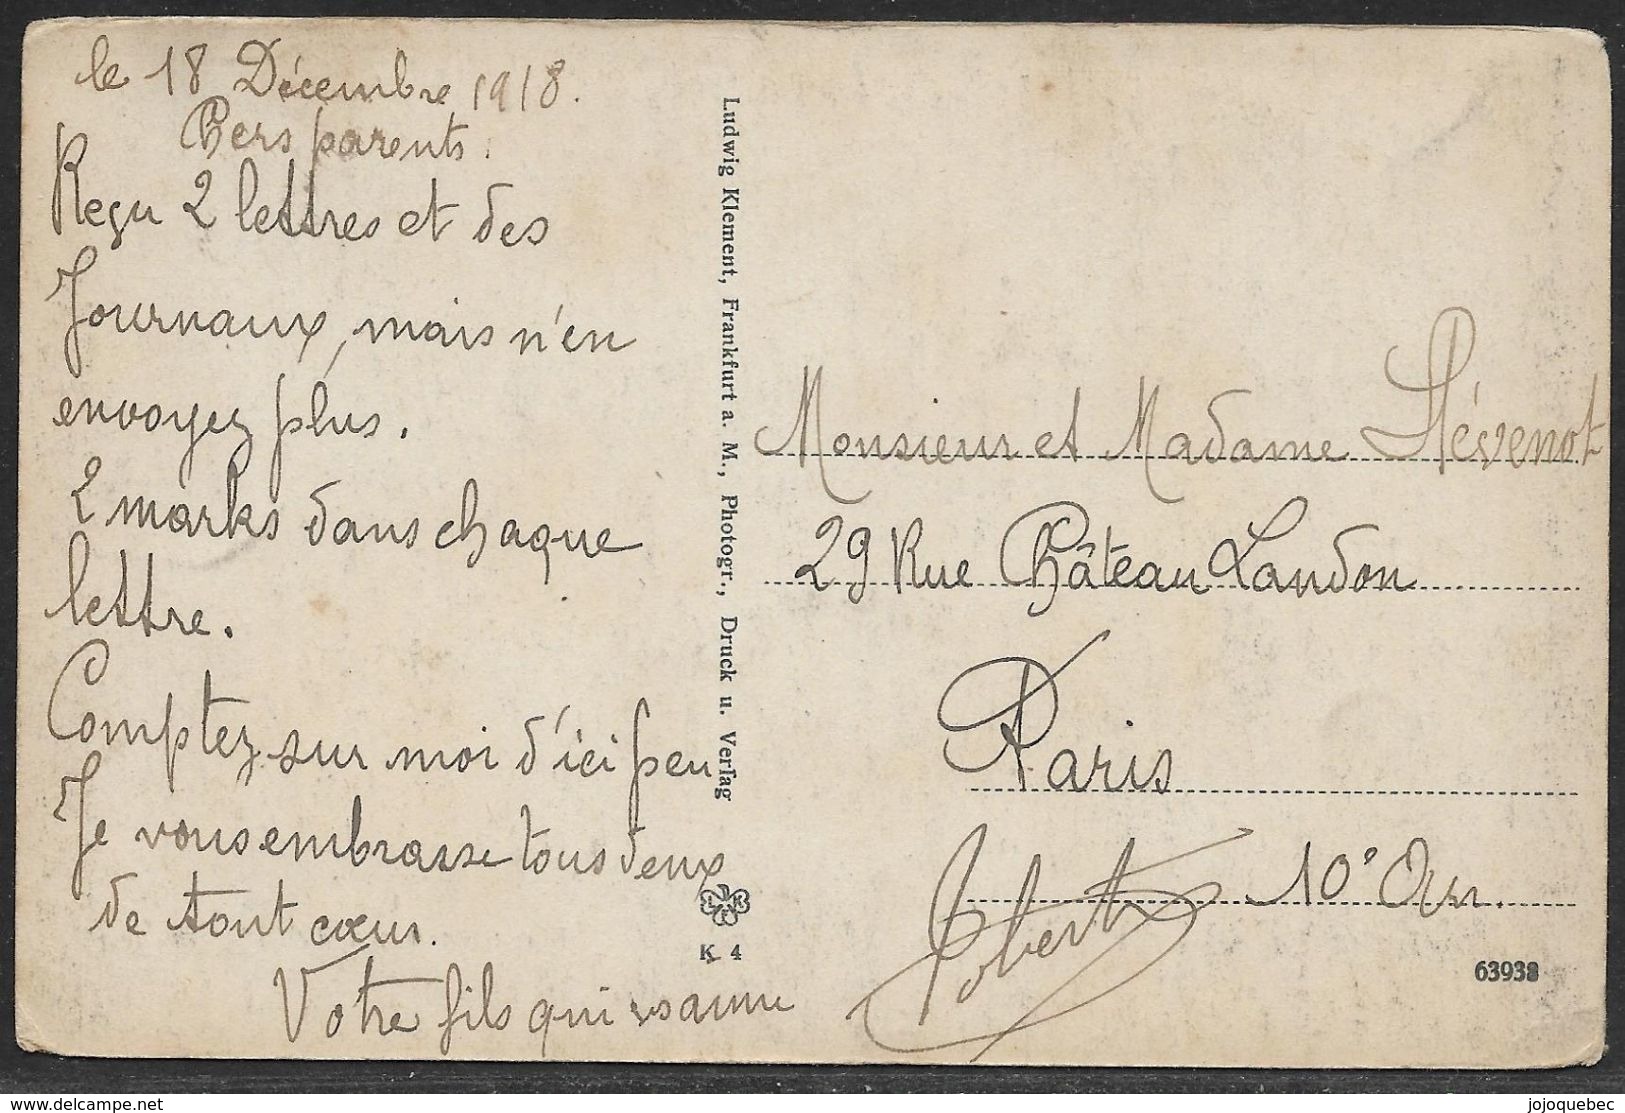 le 18 Décembre 1918.
Chers parents.
Reçu 2 lettres et des
Journaux, mais n'en
envoyez plus.
2 marks dans chaque
lettre.
Comptez sur moi d'ici peu
Je vous embrasse tous deux
de tout cœur.
Votre fils qui vs aime
Robert
Ludwig Klement, Frankfurt a. M., Photogr., Druck u. Verlag
K 4
Monsieur et Madame
29 Rue Château Landon
Paris
10° Arr.
63938
delcampe.net
jojoquebec